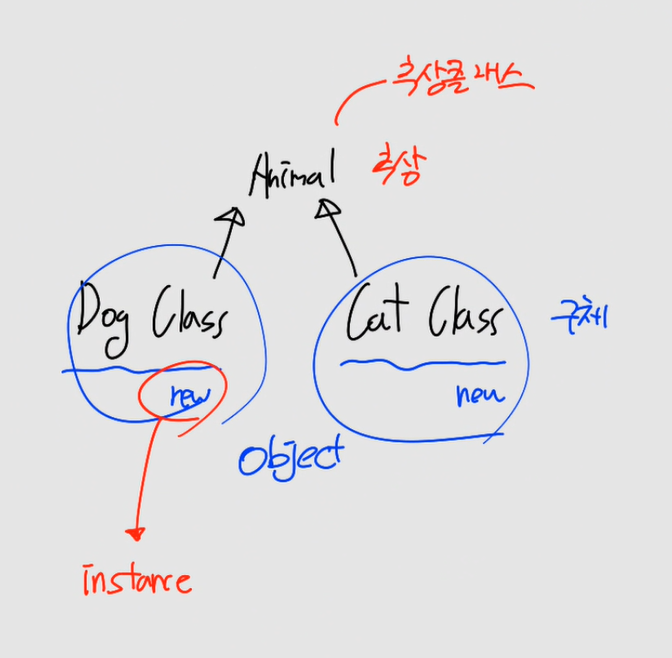 추상클래스
Animal 추상
Dog Class
Cat Class
구체
new
new
object
instance